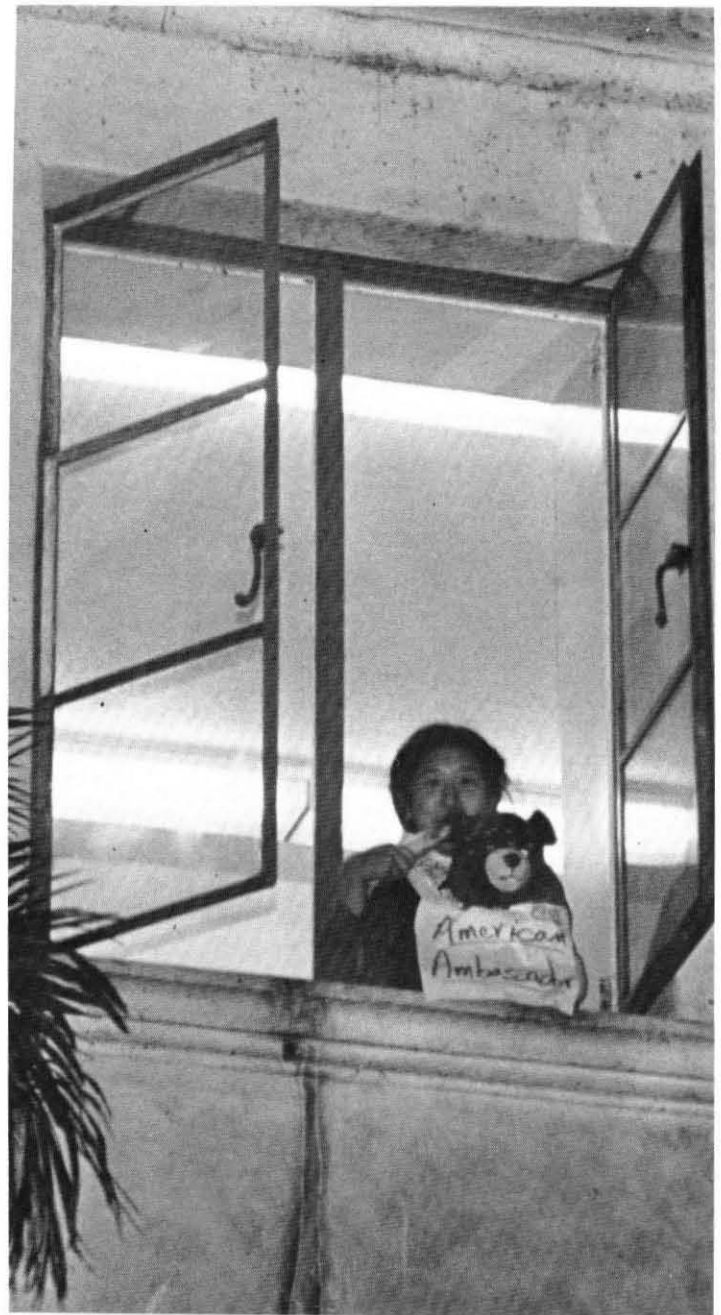 American
Ambassador